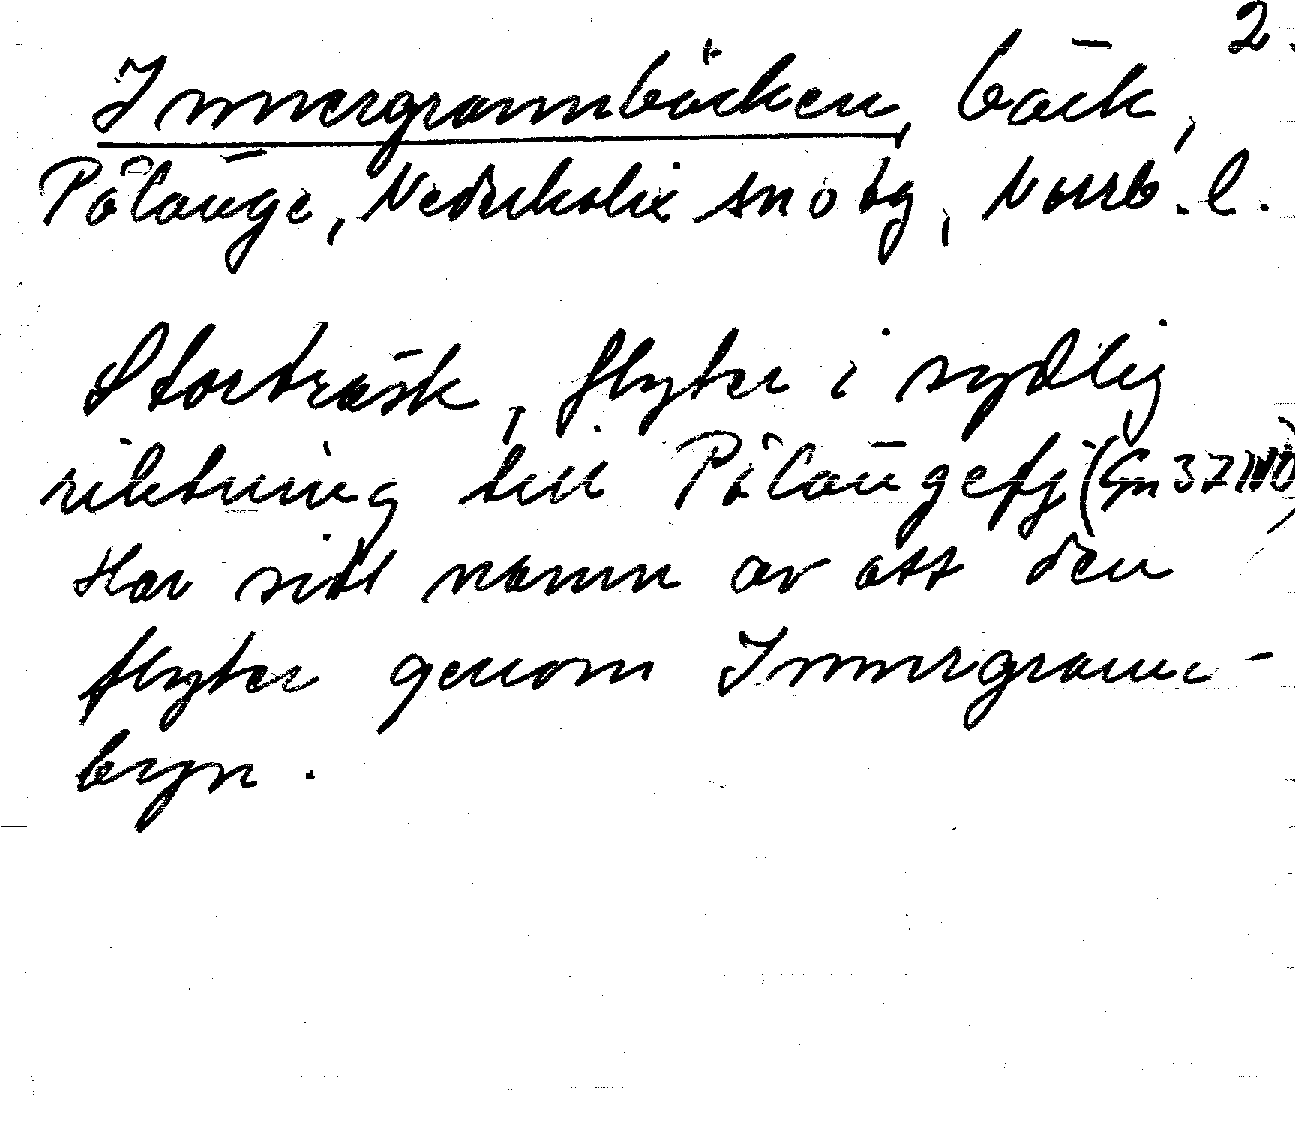 2.
Innergrannbäcken, bäck,
Pålänge, Nederkalix sn o tg, Norrb. l.
Storträsk, flyter i sydlig
riktning till Pålängefj (Gn 37
Har sitt namn av att den
flyter genom Innergrann-
byn.